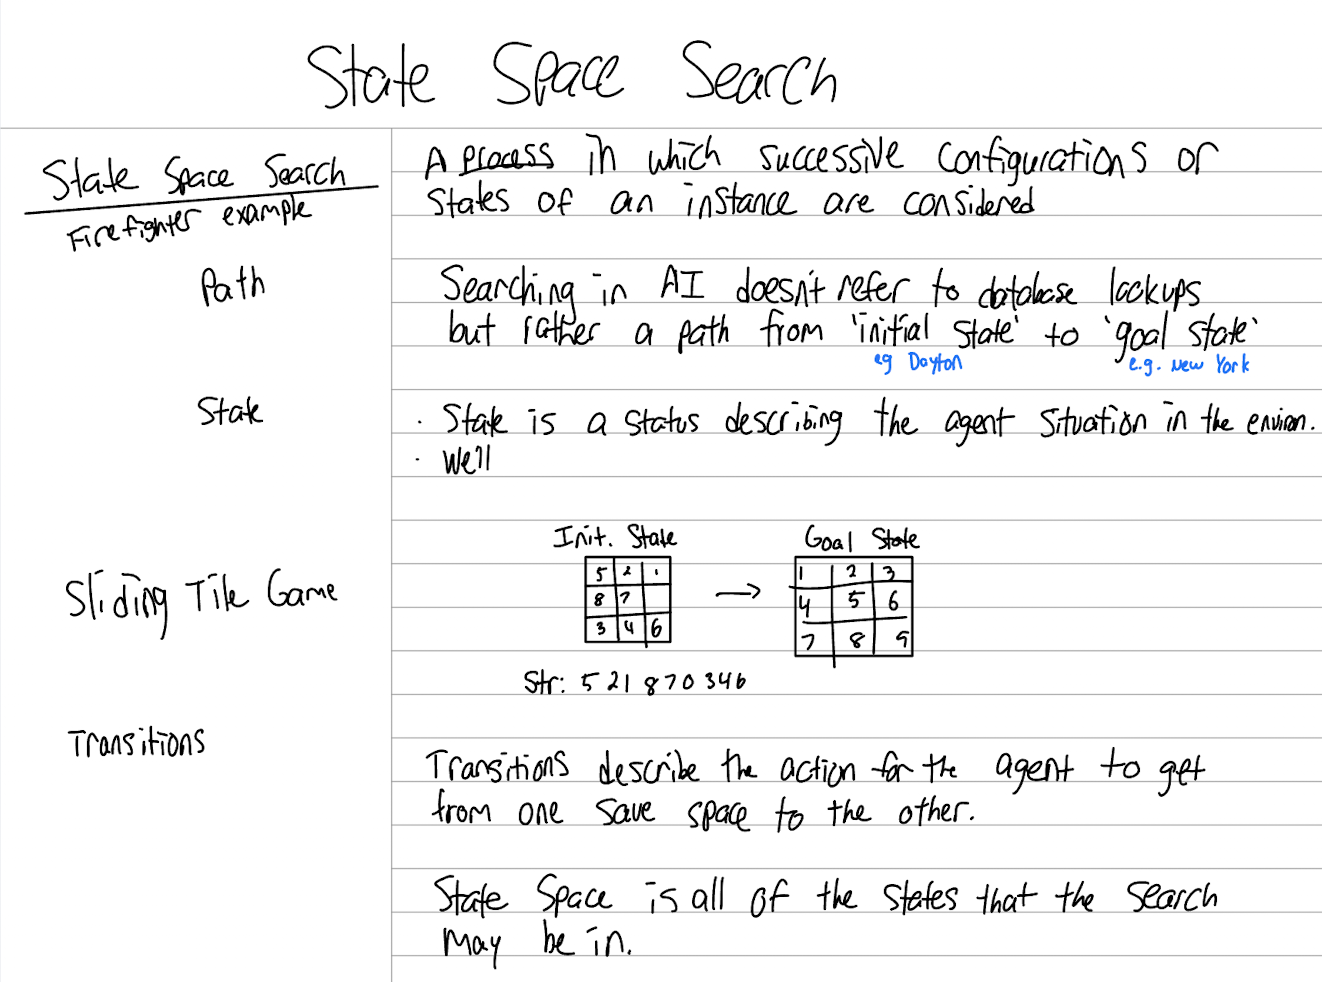 State Space Search
State Space Search
Firefighter example
A process in which successive configurations or
states of an instance are considered
Path
Searching in AI doesn't refer to database lookups
but rather a path from 'initial state' to 'goal state'
eg Dayton
e.g. New York
State
· State is a status describing the agent situation in the environ.
· We'll
Sliding Tile Game
Init. State
Goal State
5 2 1
8 7
3 4 6
1 2 3
4 5 6
7 8 9
Str: 521870346
Transitions
Transitions describe the action for the agent to get
from one save space to the other.
State Space is all of the states that the search
may be in.